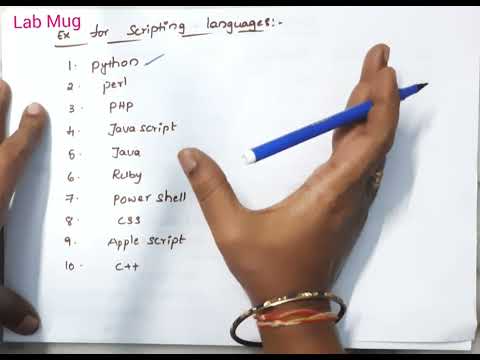 Lab Mug
Ex for scripting languages:-
1. Python
2. perl
3. PHP
4. Javascript
5. Java
6. Ruby
7. Power shell
8. CSS
9. Apple script
10. C++